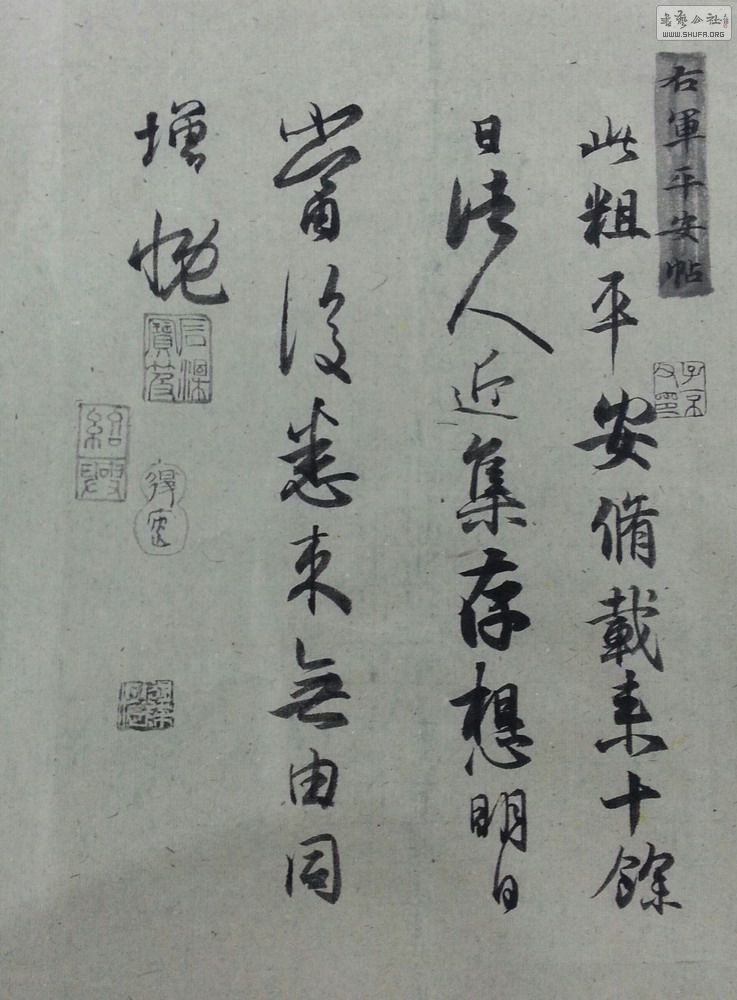 書藝公社
WWW.SHUFA.ORG
右軍平安帖
此粗平安脩載來十餘
日諸人近集存想明日
當復悉來無由同
增慨
石渠寶笈
紹興